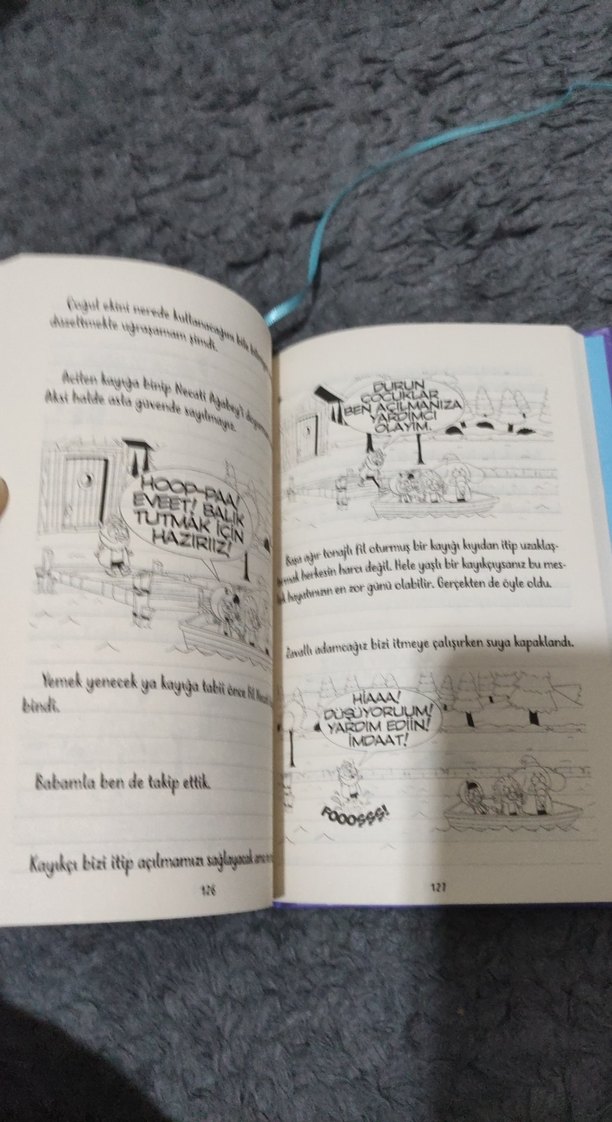 Çoğul ekini nerede kullanacağını bile
düzeltmekle uğraşamam şimdi.
Acilen kayığa binip Necati Ağabey'i
Aksi halde asla güvende sayılmayız.
HOOP-PAA!
EVEET! BALIK
TUTMAK İÇİN
HAZIRIIZ!
Yemek yenecek ya kayığa tabii önce fil
bindi.
Babamla ben de takip ettik.
Kayıkçı bizi itip açılmamızı sağlayacak
126
DURUN
ÇOCUKLAR
BEN AÇILMANIZA
YARDIMCI
OLAYIM.
ağır tonajlı fil oturmuş bir kayığı kıyıdan itip uzaklaş-
herkesin harcı değil. Hele yaşlı bir kayıkçıysanız bu mes-
hayatınızın en zor günü olabilir. Gerçekten de öyle oldu.
Zavallı adamcağız bizi itmeye çalışırken suya kapaklandı.
HİAAA!
DÜŞÜYORUUM!
YARDIM EDİİN!
İMDAAT!
FOOOŞŞŞ!
127